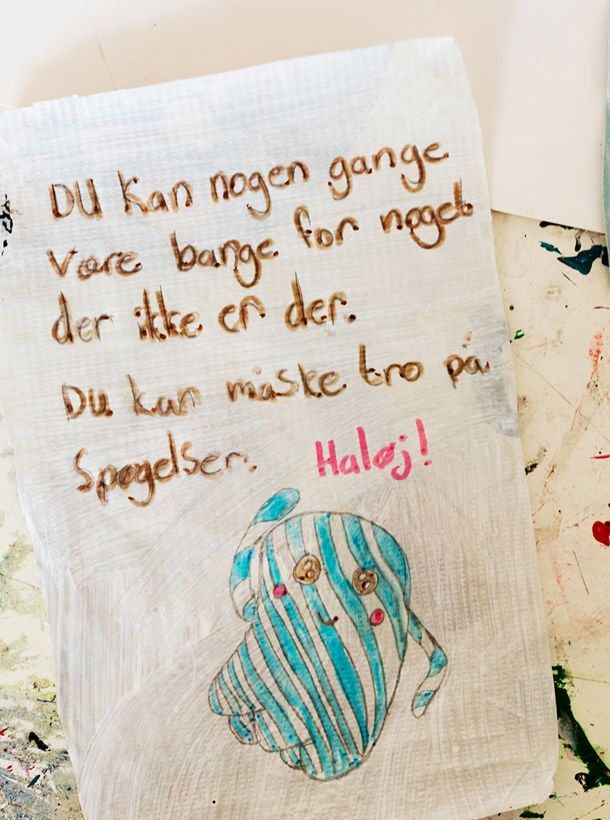 Du kan nogen gange
være bange for noget
der ikke er der.
Du kan måske tro på
Spøgelser. Haløj!